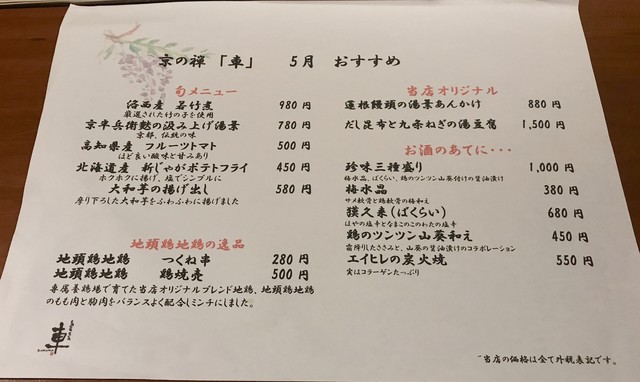 京の禅 「車」 5月 おすすめ
旬メニュー
洛西産 若竹煮 980 円
厳選された竹の子を使用
京半兵衛麩の汲み上げ湯葉 780 円
京都、伝統の味
高知県産 フルーツトマト 500 円
ほど良い酸味と甘みあり
北海道産 新じゃがポテトフライ 450 円
ホクホクに揚げ、塩でシンプルに
大和芋の揚げ出し 580 円
摩り下ろした大和芋をふわふわに揚げました
地頭鶏地鶏の逸品
地頭鶏地鶏 つくね串 280 円
地頭鶏地鶏 鶏焼売 500 円
専属養鶏場で育てた当店オリジナルブレンド地鶏、地頭鶏地鶏
のもも肉と胸肉をバランスよく配合しミンチにしました。
車
当店オリジナル
蓮根饅頭の湯葉あんかけ 880 円
だし昆布と九条ねぎの湯豆腐 1,500 円
お酒のあてに・・・
珍味三種盛り 1,000 円
梅水晶、ばくらい、鶏のツンツン山葵付けの醤油漬け
梅水晶 380 円
サメ軟骨と鶏軟骨の梅和え
獏久来(ばくらい) 680 円
ほやの塩辛となまこのこのわたの塩辛
鶏のツンツン山葵和え 450 円
霜降りしたささみと、山葵の醤油漬けのコラボレーション
エイヒレの炭火焼 550 円
実はコラーゲンたっぷり
当店の価格は全て外税表記です。